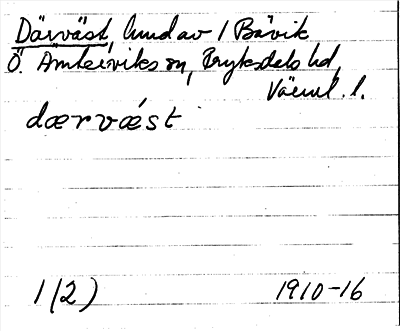 Därväst, hmd av 1 Bävik
Ö. Ämterviks sn, Fryksdals hd,
Värml. l.
dærvǽst
1(2) 1910-16